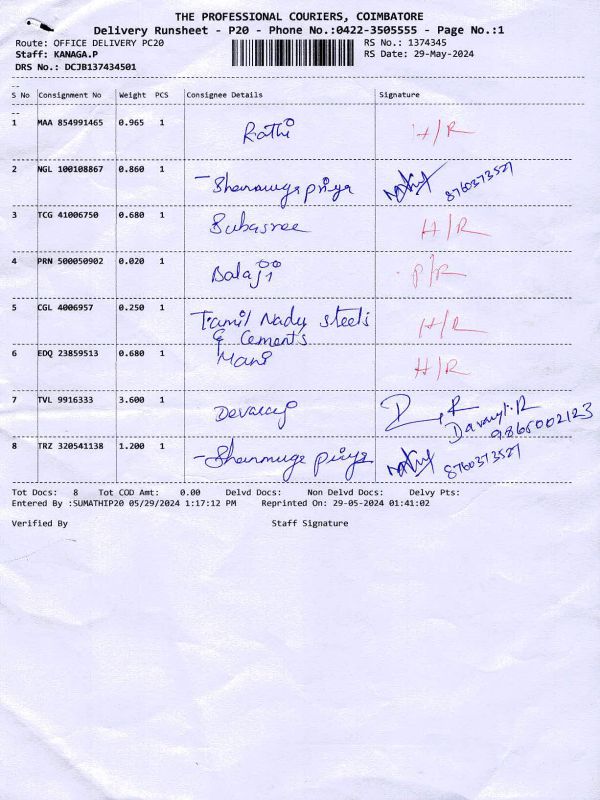 THE PROFESSIONAL COURIERS, COIMBATORE
Delivery Runsheet - P20 - Phone No.:0422-3505555 - Page No.:1
Route: OFFICE DELIVERY PC20 RS No.: 1374345
Staff: KANAGA.P RS Date: 29-May-2024
DRS No.: DCJB137434501
S No Consignment No Weight PCS Consignee Details Signature
1 MAA 854991465 0.965 1 Rathi H/R
2 NGL 100108867 0.860 1 - Shanmuga priya 8760373527
3 TCG 41006750 0.680 1 Subasree H/R
4 PRN 500050902 0.020 1 Balaji P/R
5 CGL 4006957 0.250 1 Tamil Nadu steels H/R
& Cements
6 EDQ 23859513 0.680 1 Mani H/R
7 TVL 9916333 3.600 1 Devaraj
9865002123
8 TRZ 320541138 1.200 1 - Shanmuga priya 8760373527
Tot Docs: 8 Tot COD Amt: 0.00 Delvd Docs: Non Delvd Docs: Delvy Pts:
Entered By :SUMATHIP20 05/29/2024 1:17:12 PM Reprinted On: 29-05-2024 01:41:02
Verified By Staff Signature